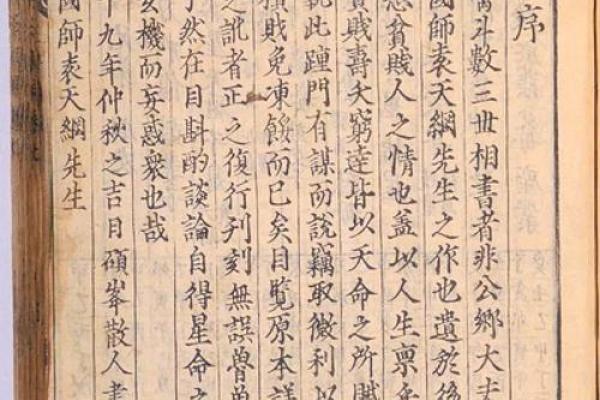 序
斗數三世相書者非公鄉大夫
國師袁天綱先生之作也遺於後
貧賤人之情也盖以人生禀
賤壽夭窮達皆以天命之所賦
此踵門有謀而說竊取微利以
賤免凍餒而已矣目覽原本詳
之訛者正之復行刋刻無誤曾
了然在目斟酌談論自得星命之
玄機而妄惑衆也哉
十九年仲秋之吉日碩峯散人書
國師袁天綱先生